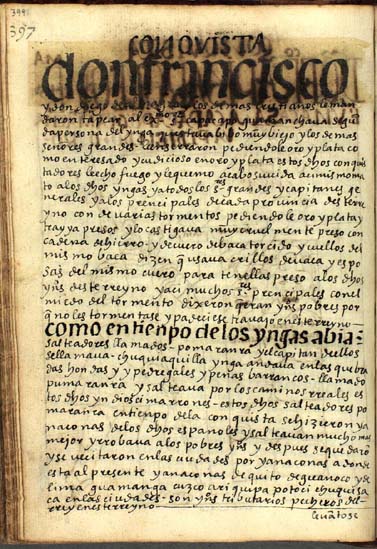 399
397
CONQVISTA
don francisco
y don diego de almagro y los demas cristianos le man
daron tapear al exmo sor capac apo guaman chaua segu
da persona del ynga questaua bibo muy biejo y los demas
señores grandes le enserraron pediendole oro y plata co
mo enteresado y cudicioso en oro y plata estos dhos conquis
tadores le echo fuego y le quemo acabo su uida acimismo ma
to a los dhos yngas y a todos los ss grandes y capitanes ge
nerales y a los prencipales de cada prouincia deste rrey
no con de uarias tormentos pediendole oro y plata y
traya presos y los castigaua muy cruelmente preso con
cadena de hierro y de cuero de baca torcido y cuellos del
mismo baca dizen q usaua grillos de uaca y espo
sas del mismo cuero para tenellas preso a los dhos
yns deste rreyno y aci muchos prencipales con el
miedo del tormento dixeron que eran yns pobres por
q no les tormentase y padeciese trauajo en este rreyno
como en tienpo de los yngas abia
salteadores llamados poma ranra y el capitan de ellos
se llamaua chuquiaquilla ynga andaua en las quebra
das hondas y y pedregales y peñas barrancos llamado
puma ranra y salteaua por los caminos rreales es
tos dhos yndios cimarrones estos dhos salteadores po
maranra en tienpo de la conquista se hizieron ya
naconas de los dhos españoles y salteauan mucho mas
mejor y rrobaua a los pobres yns y despues se quedaron
y se uecitaron en las ciudades por yanaconas adonde
esta al presente yanaconas de quito de guanoco y de
lima guamanga cuzco ariquipa potoci chuquisa
ca en las ciudades son yns tributarios pecheros del
rrey en este rreyno
leuantose